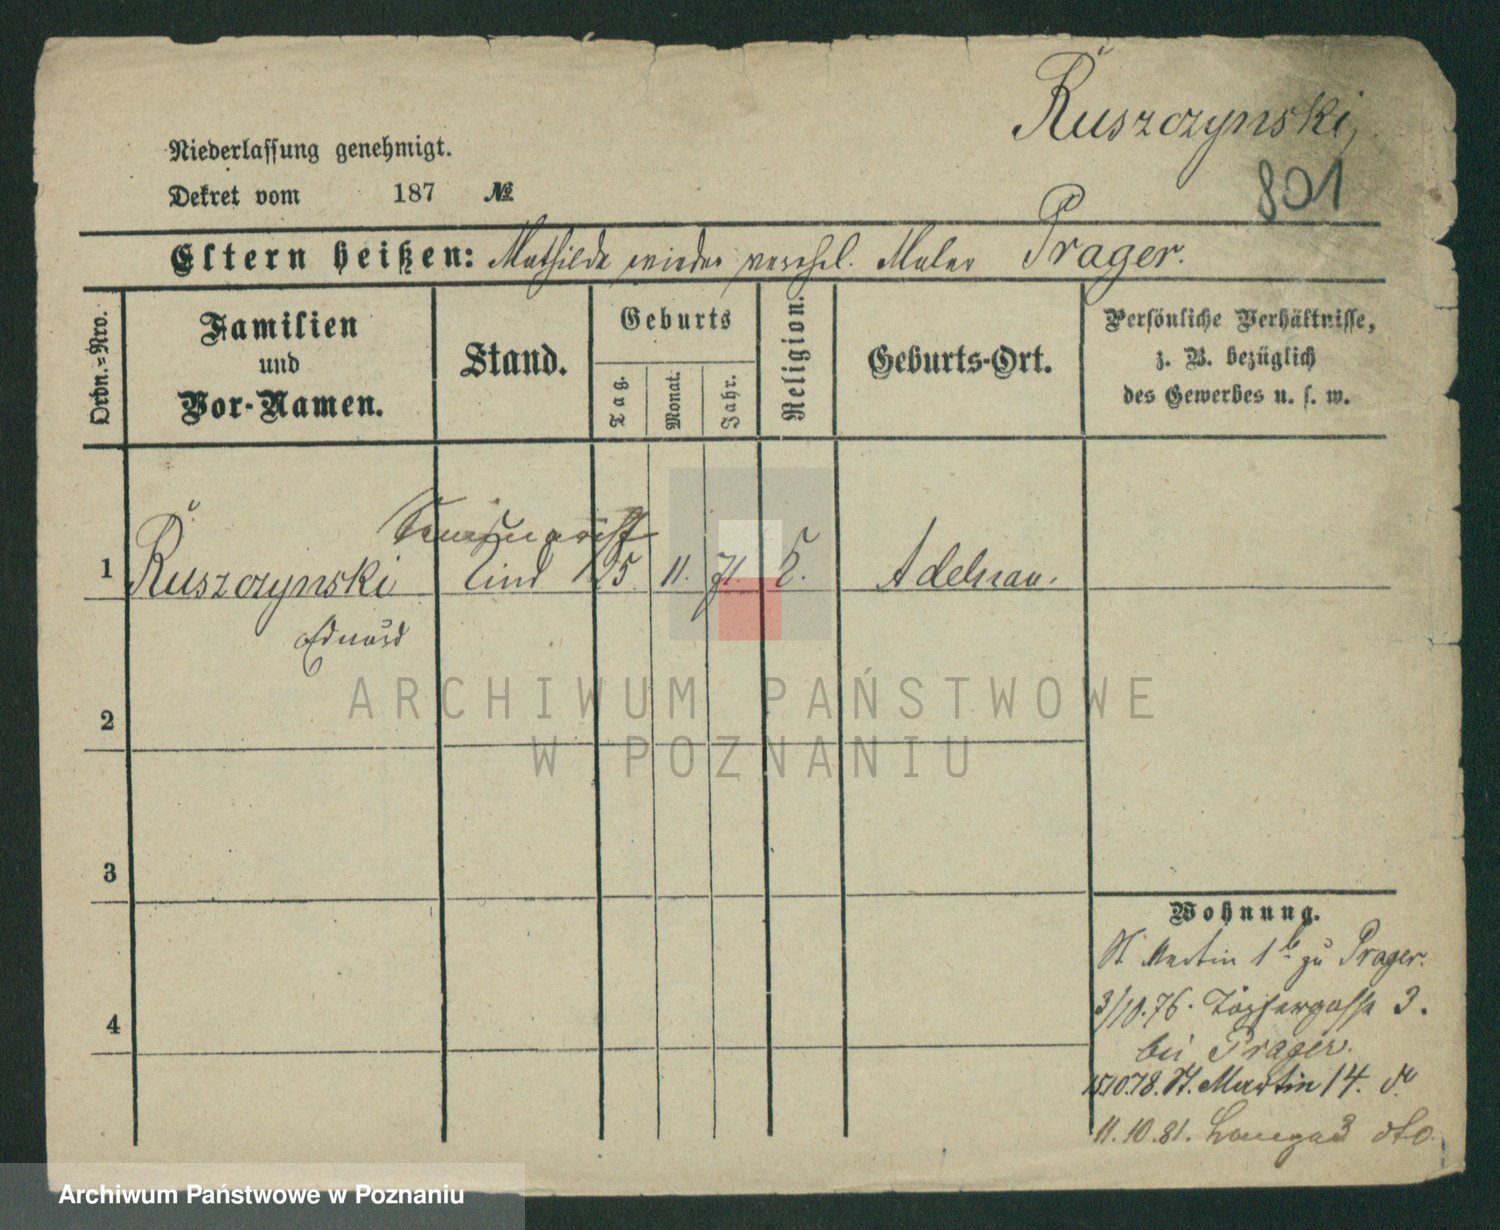 Ruszczynski,
801
Niederlassung genehmigt.
Dekret vom 187 №
Eltern heißen: Mathilde wieder verehel. Maler Prager.
Ordn.-Nro.
Familien
und
Vor-Namen.
Stand.
Geburts
Tag.
Monat.
Jahr.
Religion.
Geburts-Ort.
Persönliche Verhältnisse,
z. B. bezüglich
des Gewerbes u. s. w.
1 Ruszczynski Kind 25 11. 71. Adelnau.
Eduard
2
3
4
Wohnung.
St. Martin 1 b zu Prager.
3/10.76. Töpfergasse 3.
bei Prager.
15.10.78. St. Martin 14. do
11.10.81. dto.
ARCHIWUM PAŃSTWOWE
W POZNANIU
Archiwum Państwowe w Poznaniu